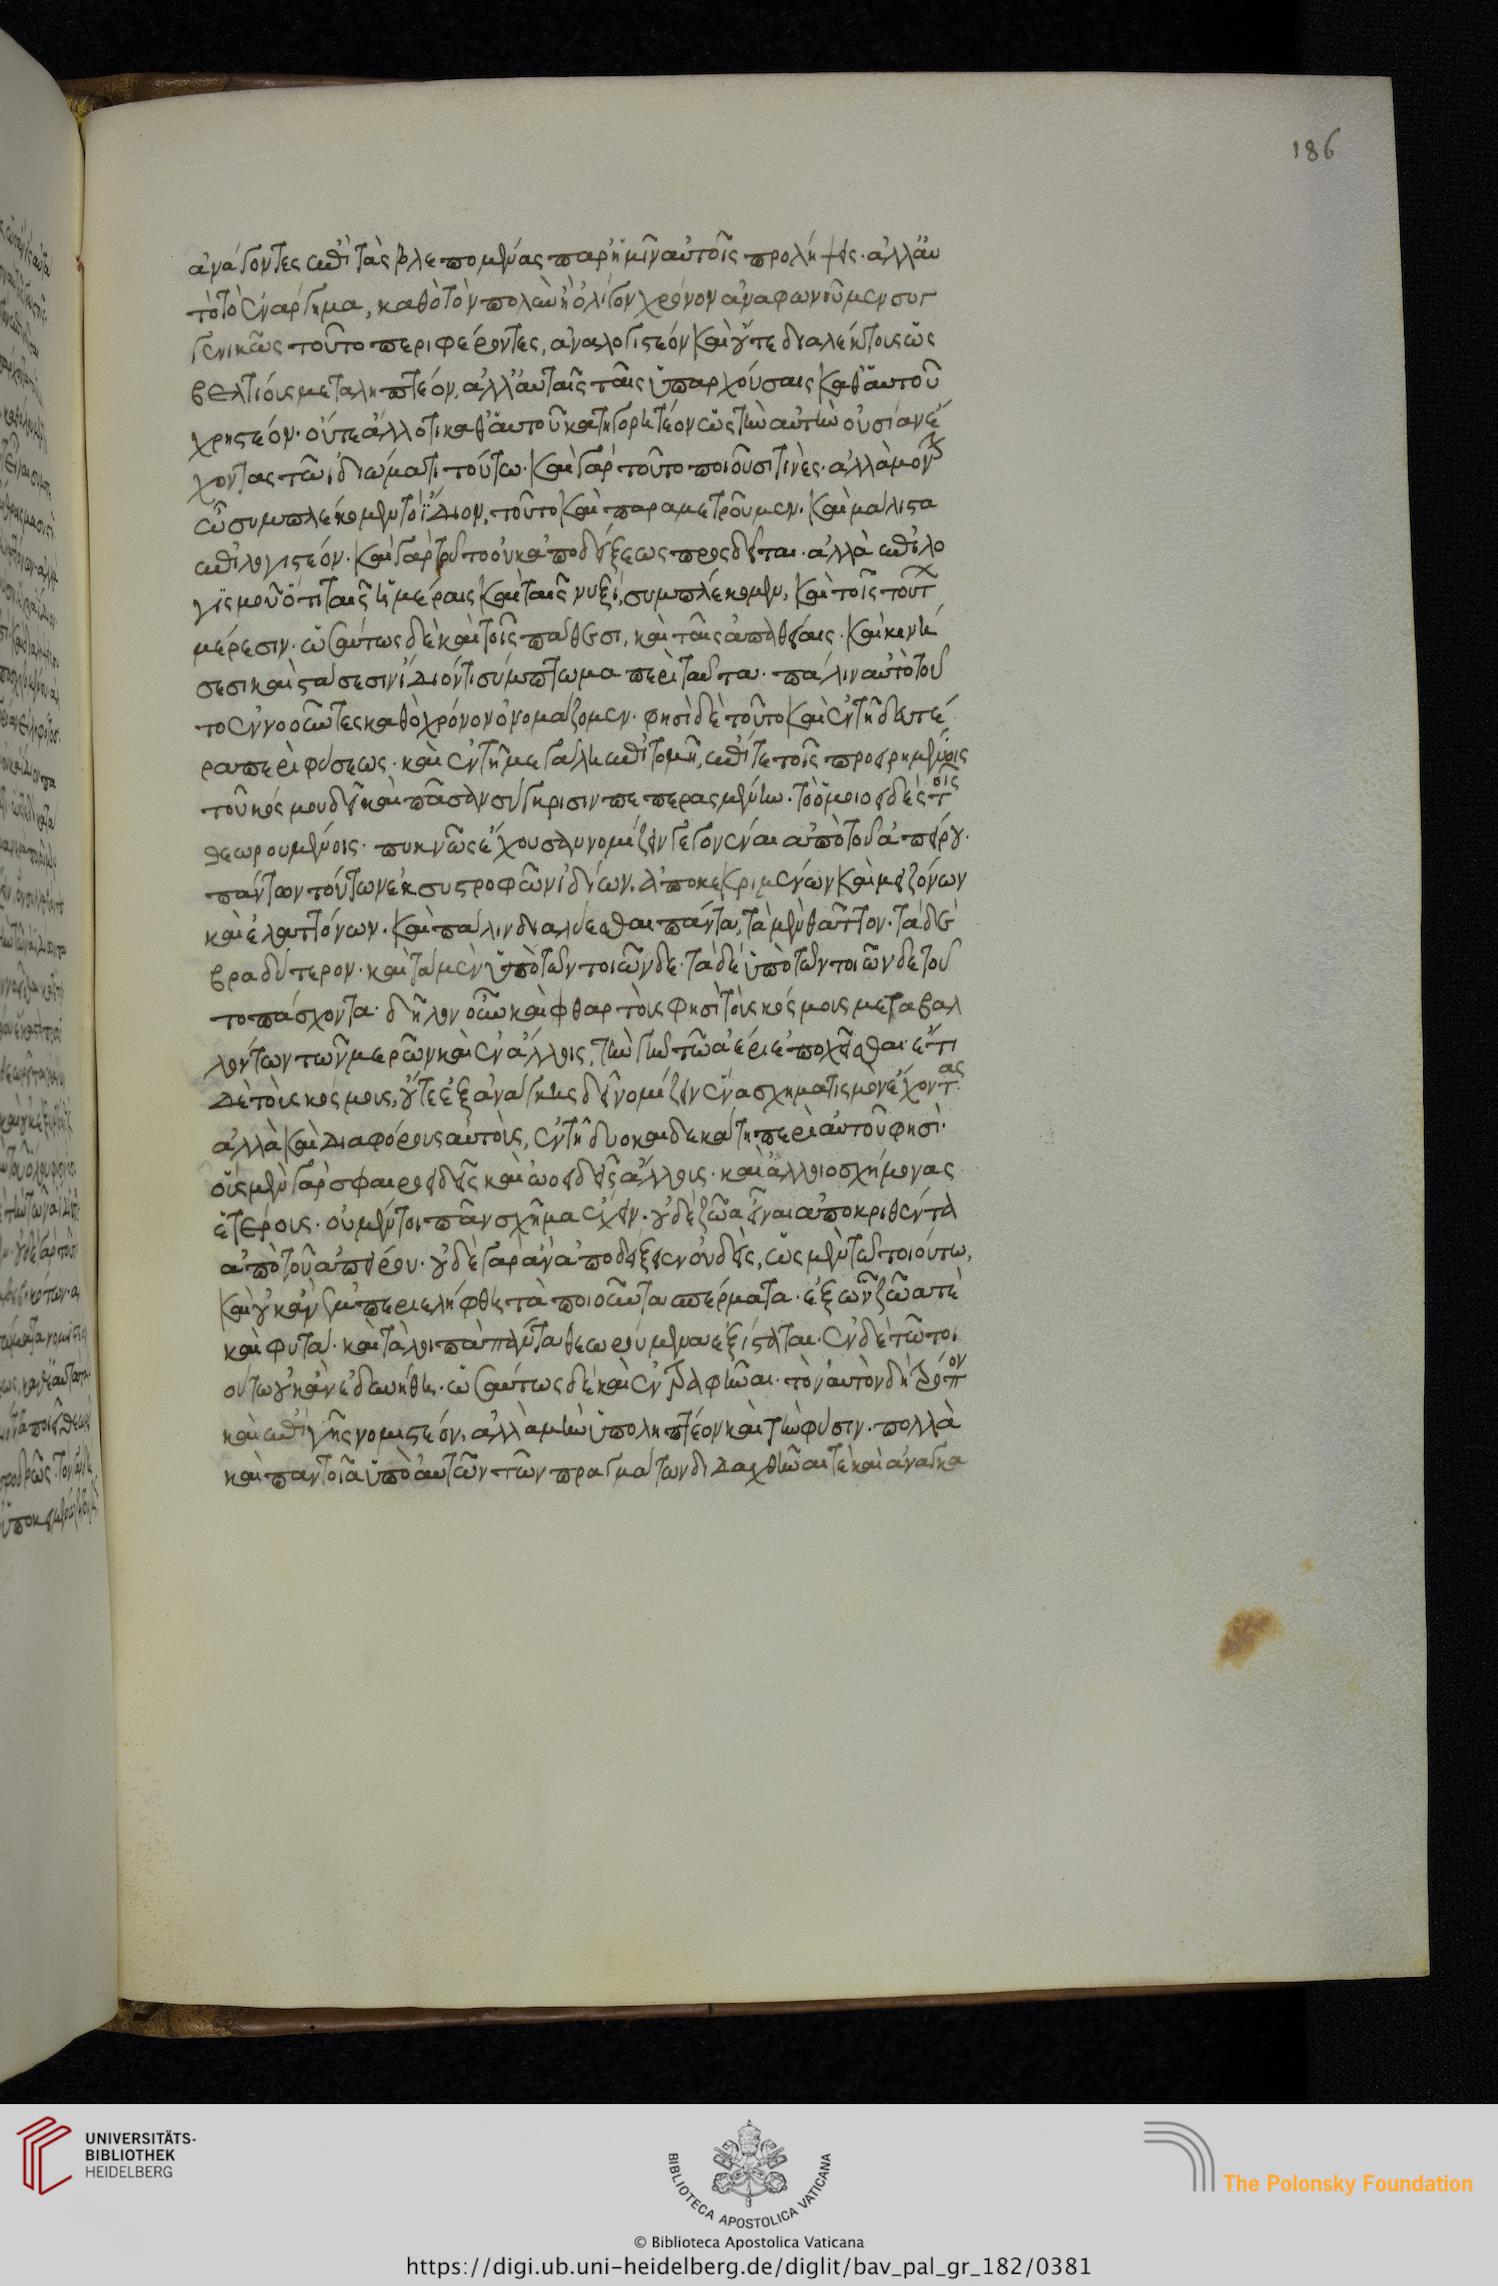 ἀνάγοντες ἐπὶ τὰς βλεπομένας παρ' ἡμῖν αὐτοῖς προλήψεις· ἀλλ' αὐ
τὸ τὸ ἐνάργημα, καθὸ τὸν πολὺν ἢ ὀλίγον χρόνον ἀναφωνοῦμεν συγ
γενικῶς τοῦτο περιφέροντες, ἀναλογιστέον καὶ οὔτε διαλέκτους ὡς
βελτίους μεταληπτέον, ἀλλ' αὐταῖς ταῖς ὑπαρχούσαις καθ' αὑτοῦ
χρηστέον· οὔτε ἄλλο τι καθ' αὑτοῦ κατηγορητέον ὡς τὴν αὐτὴν οὐσίαν ἔ
χοντας τῶ ἰδιώματι τούτω· καὶ γὰρ τοῦτο ποιοῦσι τινὲς· ἀλλὰ μόνον
ὧ συμπλέκομεν τὸ ἴδιον, τοῦτο καὶ παραμετροῦμεν. καὶ μάλιστα
ἐπιλογιστέον· καὶ γὰρ τοῦτο οὐκ ἀποδείξεως προσδεῖται· ἀλλὰ ἐπιλο
γισμοῦ ὅτι ταῖς ἡμέραις καὶ ταῖς νυξὶ, συμπλέκομεν, καὶ τοῖς τούτων
μέρεσιν· ὡσαύτως δὲ καὶ τοῖς πάθεσι, καὶ ταῖς ἀπαθείαις· καὶ κινή
σεσι καὶ στάσεσιν ἴδιόν τι σύμπτωμα περὶ ταῦτα· πάλιν αὐτὸ τοῦ
το ἐννοοῦντες καθὸ χρόνον ὀνομάζομεν· φησὶ δὲ τοῦτο καὶ ἐν τῆ δευτέ
ρα περὶ φύσεως· καὶ ἐν τῆ μεγάλη ἐπιτομῆ, ἐπί τε τοῖς προειρημένοις
τοὺς κόσμους δεῖ καὶ πᾶσαν σύγκρισιν πεπερασμένην· τὸ ὁμοιοειδὲς τοῖς
θεωρουμένοις· πυκνῶς ἔχουσαν νομίζειν γεγονέναι ἀπὸ τοῦ ἀπείρου·
πάντων τούτων ἐκ συστροφῶν ἰδίων, ἀποκεκριμένων καὶ μειζόνων
καὶ ἐλαττόνων· καὶ πάλιν διαλύεσθαι πάντα, τὰ μὲν θᾶττον· τὰ δὲ
βραδύτερον· καὶ τὰ μὲν ὑπὸ τῶν τοιῶνδε· τὰ δὲ ὑπὸ τῶν τοιῶνδε τοῦ
το πάσχοντα· δῆλον οὖν καὶ φθαρτοὺς φησὶ τοὺς κόσμους μεταβαλ
λόντων τῶν μερῶν καὶ ἐν ἄλλοις, τὴν γῆν τῶ ἀέρι ἐποχεῖσθαι· ἔτι
δὲ τοὺς κόσμους, οὔτε ἐξ ἀνάγκης δεῖ νομίζειν ἕνα σχηματισμὸν ἔχοντας
ἀλλὰ καὶ διαφόρους αὐτοὺς, ἐν τῆ δυοκαιδεκάτη περὶ αὐτοῦ φησὶ·
οὓς μὲν γὰρ σφαιροειδεῖς καὶ ὠοειδεῖς ἄλλους· καὶ ἀλλοιοσχήμονας
ἑτέρους· οὐ μέντοι πᾶν σχῆμα ἔχειν· οὐδὲ ζῶα εἶναι ἀποκριθέντα
ἀπὸ τοῦ ἀπείρου· οὐδὲ γὰρ ἂν ἀποδείξειεν οὐδεὶς, ὡς μὲν τῶ τοιούτω,
καὶ οὐκ ἂν ἐμπεριελήφθη τὰ τοιοῦτα σπέρματα· ἐξ ὧν ζῶα τὲ
καὶ φυτά· καὶ τὰ λοιπὰ πάντα θεωρούμενα ἐξίσταται· ἐν δὲ τῶ τοι
ούτω οὐκ ἂν ἐδυνήθη· ὡσαύτως δὲ καὶ ἐντραφῆναι· τὸν αὐτὸν δὴ τρόπον
καὶ ἐπὶ γῆς νομιστέον. ἀλλὰ μὴν ὑποληπτέον καὶ τὴν φύσιν· πολλὰ
καὶ παντοῖα ὑπὸ αὐτῶν τῶν πραγμάτων διδαχθῆναι τὲ καὶ ἀναγκα
186
UNIVERSITÄTS-
BIBLIOTHEK
HEIDELBERG
BIBLIOTECA APOSTOLICA VATICANA
© Biblioteca Apostolica Vaticana
The Polonsky Foundation
https://digi.ub.uni-heidelberg.de/diglit/bav_pal_gr_182/0381